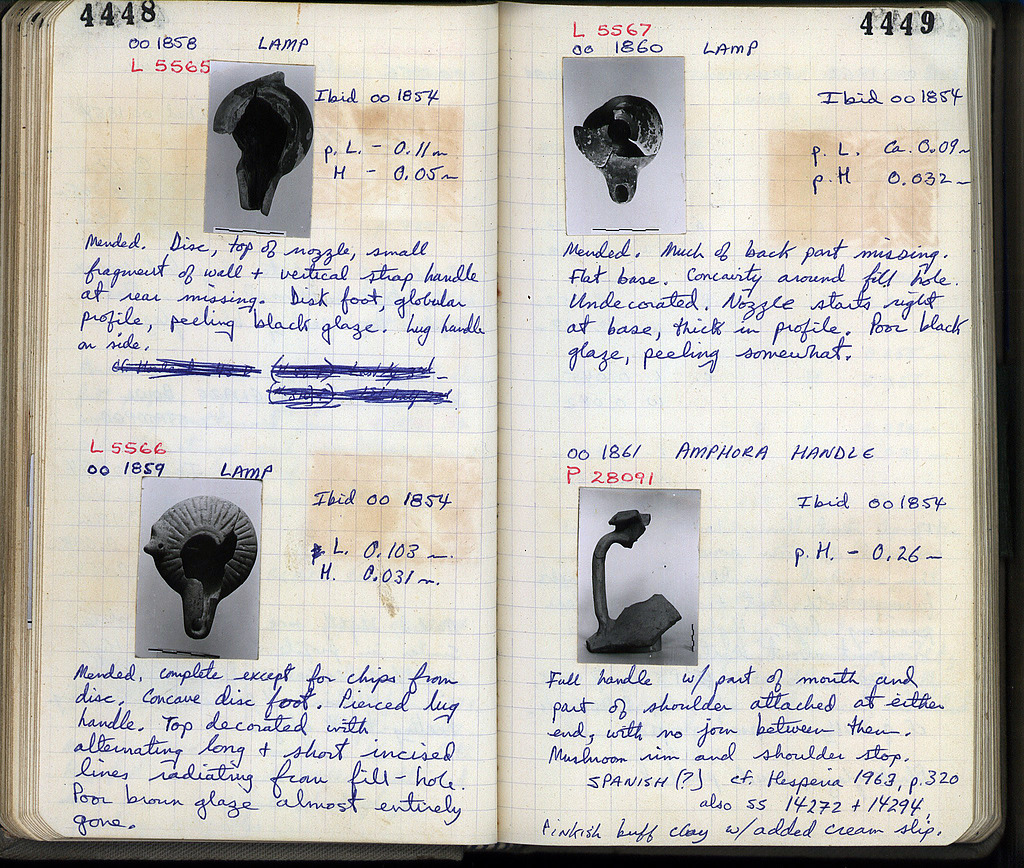 4448
oo 1858 LAMP
L 5565
Ibid oo 1854
p. L. - 0.11 m
H - 0.05 m
Mended. Disc, top of nozzle, small
fragment of wall + vertical strap handle
at rear missing. Disk foot, globular
profile, peeling black glaze. Lug handle
on side.
L 5566
oo 1859 LAMP
Ibid oo 1854
L. 0.103 m.
H. 0.031 m.
Mended, complete except for chips from
disc. Concave disc foot. Pierced lug
handle. Top decorated with
alternating long + short incised
lines radiating from fill-hole.
Poor brown glaze almost entirely
gone.
4449
L 5567
oo 1860 LAMP
Ibid oo 1854
p. L. ca. 0.09 m
p. H 0.032 m
Mended. Much of back part missing.
Flat base. Concavity around fill hole.
Undecorated. Nozzle starts right
at base, thick in profile. Poor black
glaze, peeling somewhat.
oo 1861 AMPHORA HANDLE
P 28091
Ibid oo 1854
p. H. - 0.26 m
Full handle w/ part of mouth and
part of shoulder attached at either
end, with no join between them.
Mushroom rim and shoulder stop.
SPANISH (?) cf. Hesperia 1963, p. 320
also SS 14272 + 14294.
Pinkish buff clay w/ added cream slip.